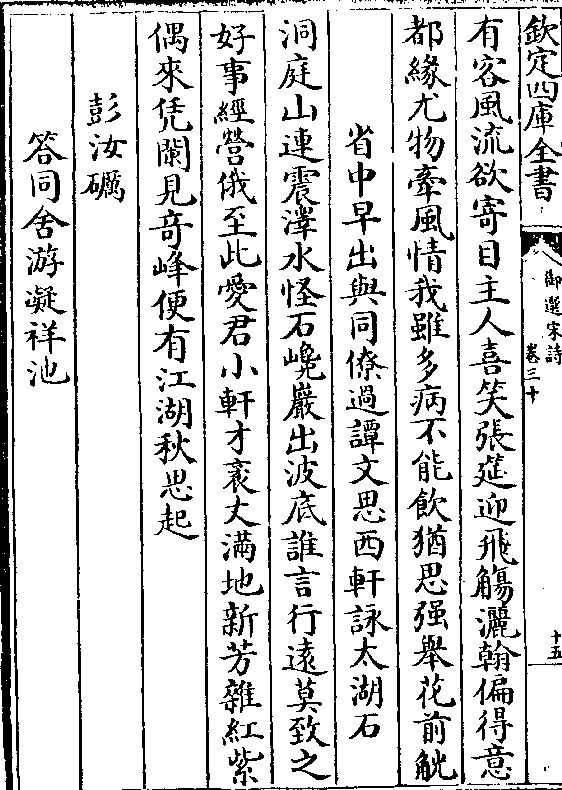 欽定四庫全書
御選宋詩
卷三十
十五
有客風流欲寄目主人喜笑張筵迎飛觴灑翰偏得意
都緣尤物牽風情我雖多病不能飲猶思强舉花前觥
省中早出與同僚過譚文思西軒詠太湖石
洞庭山連震澤水怪石巉巖出波底誰言行遠莫致之
好事經營俄至此愛君小軒才袤丈滿地新芳雜紅紫
偶來凭闌見竒峰便有江湖秋思起
彭汝礪
答同舍游凝祥池